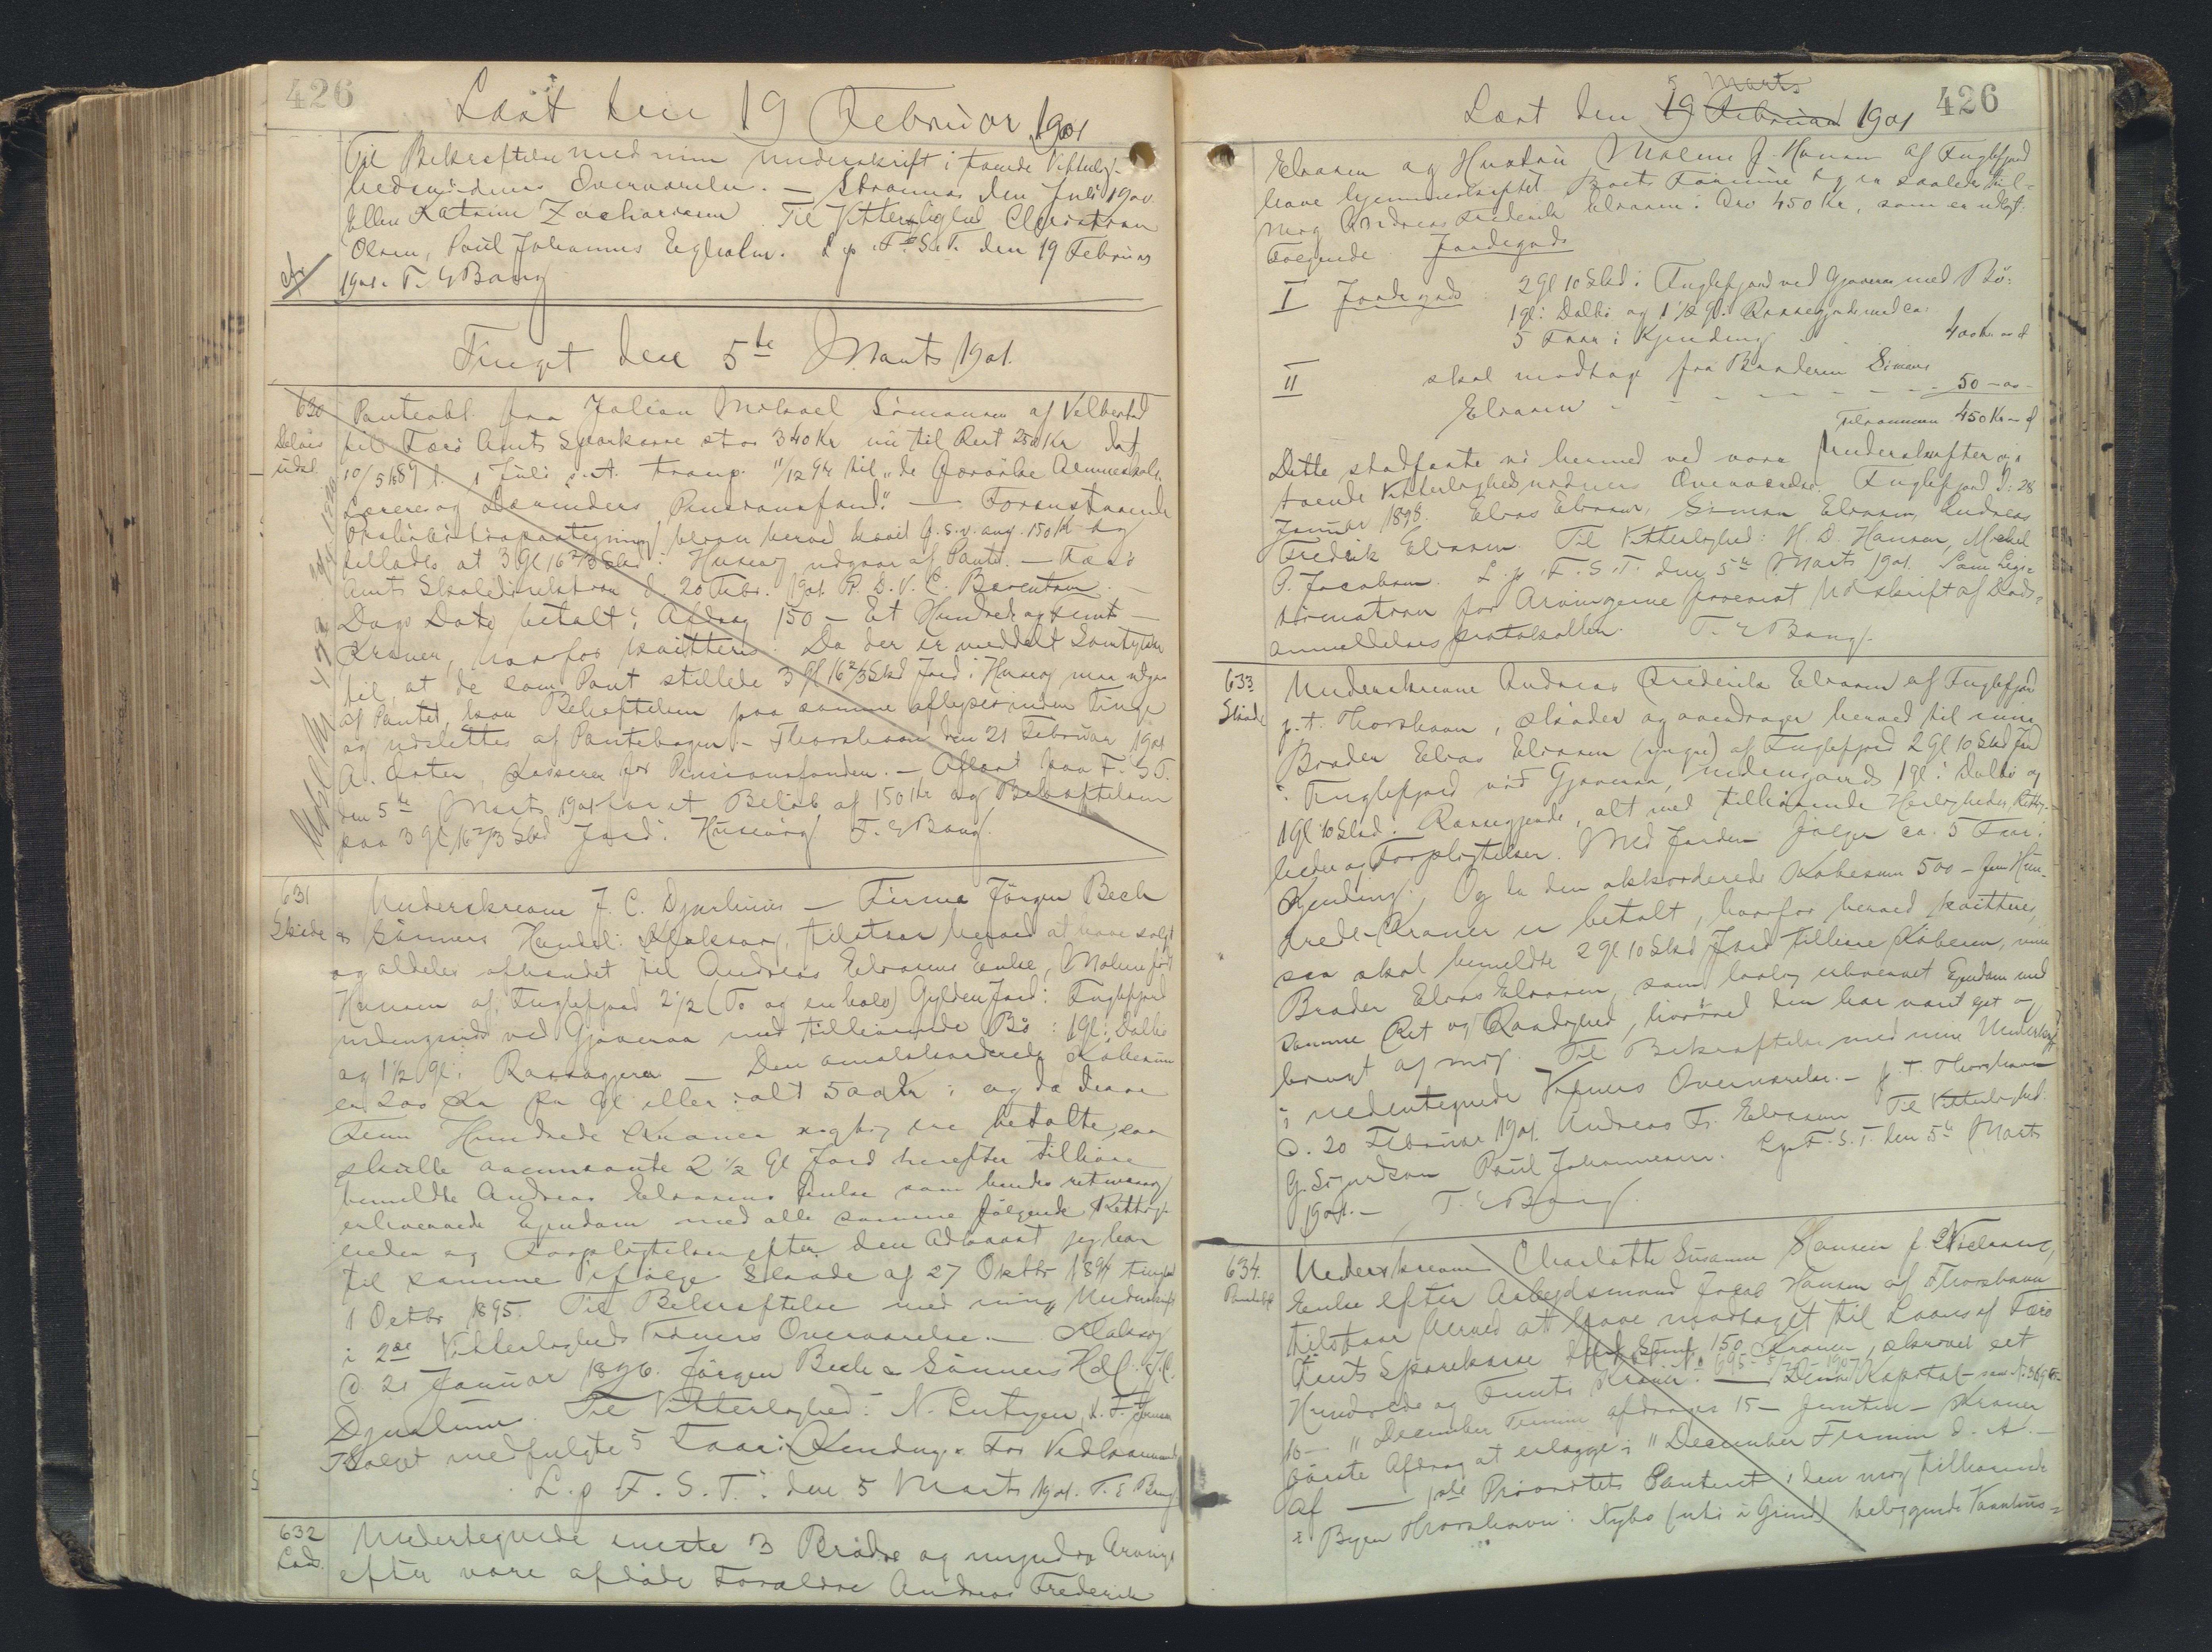 426
Læst den 19 Februar 1901
Til Bekræftelse med min Underskrift i tvende Vitterlig-
hedsvidners Overværelse. — Strømnæs den Juli 1900
Ellen Katrine Zachariasen Til Vitterlighed Christian
Olsen, Poul Johannes Egholm. L. p. F. S. T. den 19 Februar
1901. T. E Bang
Tinget den 5te Marts 1901.
630 Panteobl. fra Julian Mikael Simonsen af Velbestad
Delvis til Færø Amts Sparkasse stor 340 Kr nu til Rest 250 Kr dat
udsl. 10/5 1889 t. 1 Juli s. A. transp. 11/12 94 til "de færøiske Almueskole-
Lærere og Lærinders Pensionsfond." — Foranstaaende
bliver herved hvad G. S. v. ang. 150 Kr og
tillades at 3 Gl 16 2/3 Skd i Husevig udgaar af Pantet. — Færø
Amts Skoledirektion d 20 Febr. 1901 P. D. V. C. Bærentsen. —
Dags Dato betalt i Afdrag 150 — Et Hundrede og femti —
Kroner, hvorfor kvitteres. Da der er meddelt Samtykke
til, at de som Pant stillede 3 Gl 16 2/3 Skd Jord i Husevig maa udgaa
af Pantet, kan Behæftelsen paa samme aflyses inden Tinge
og udslettes af Pantebogen. — Thorshavn den 21 Februar 1901
A. Kasserer for Pensionsfonden. — Aflæst paa F. S T.
den 5te Marts 1901 for et Beløb af 150 Kr og Behæftelsen
paa 3 Gl 16 2/3 Skd Jord i Husevig T. E Bang.
631 Underskrevne J. C. Djurhuus — Firma Jørgen Bech
Skøde & Sønners Handel i Klaksvig, tilstaar herved at have solgt
og aldeles afhændet til Andreas Eliasens Enke, Malene født
Hansen af Fuglefjord 2 1/2 (To og en halv) Gylden Jord i Fuglefjord
nedengards ved Gjoveraa med tilliggende Bø i 1 Gl i Dalbø
og 1 1/2 Gl i Rassagjera — Den omakkorderede Købesum
er 200 Kr pr Gl eller i alt 500 Kr; og da disse
Fem Hundrede Kroner rigtig ere betalte, saa
skulle ovennævnte 2 1/2 Gl Jord herefter tilhøre
bemeldte Andreas Eliasens Enke som hendes retmæssig
erhvervede Ejendom med alle samme følgende Rettig-
heder og Forpligtelser efter den Adkomst jeg har
til samme ifølge Skøde af 27 Oktbr 1894 tinglæst
1 Octbr 1895. Til Bekræftelse med min Underskrift
i 2de Vitterligheds Vidners Overværelse. — Klaksvig
d 21 Januar 1896. Jørgen Bech & Sønners Hdl. J. C.
Djurhuus. Til Vitterlighed: N. Lützen,
Salget medfulgte 5 Faar i Kending.
L. p F. S. T. den 5 Marts 1901. T. E Bang
632 Undertegnede eneste 3 Brødre og myndige Arvinge
efter vore afdøde Forældre Andreas Frederik
426
Læst den 19 Februar 5 Marts 1901
Eliasen og Hustru Malene J. Hansen af Fuglefjord
have gjennemskiftet Boets Formue og er saaledes til-
mig Andreas Frederik Eliasen i Arv 450 Kr, som er udlagt
følgende Jordegods
I Jordegods 2 Gl 10 Skd i Fuglefjord ved Gjoveraa med Bø i
1 Gl i Dalbø og 1 1/2 Gl i Rassegjerde med ca.
5 Faar i Kjending 400 Kr
II skal modtage fra Broderen Simon
Eliasen 50 —
Tilsammen 450 Kr
Dette stadfæste vi hermed ved vore Underskrifter og i
tvende Vitterlighedsvidners Overværelse. Fuglefjord d: 28
Januar 1898. Elias Eliasen, Simon Eliasen, Andreas
Fredrik Eliasen. Til Vitterlighed: H. D. Hansen, Mikkel
P. Jacobsen. L. p. F. S. T. den 5te Marts 1901. Som Legi-
timation for Arvingerne forevist Udskrift af Døds-
anmeldelsesprotokollen. T. E Bang.
633 Underskrevne Andreas Frederik Eliasen af Fuglefjord
Skøde p. t. Thorshavn, skjøder og overdrager herved til min
Broder Elias Eliasen (yngre) af Fuglefjord 2 Gl 10 Skd Jord
i Fuglefjord ved Gjoveraa, nedengaards 1 Gl i Dalbø og
1 Gl 10 Skd i Rassegjerde, alt med tilhørende Herligheder, Rettig-
heder og Forpligtelser. Med Jorden følger ca. 5 Faar i
Kjending. Og da den akkorderede Købesum 500 — fem Hun-
drede — Kroner er betalt, hvorfor herved kvitteres,
saa skal bemeldte 2 Gl 10 Skd Jord tilhøre Køberen, min
Broder Elias Eliasen, som lovlig erhvervet Ejendom med
samme Ret og Raadighed, hvormed den har været ejet og
brugt af mig. Til Bekræftelse med min Underskrift
i nedentegnede Vidners Overværelse. — p. t. Thorshavn
d. 20 Februar 1901. Andreas Fr. Eliasen Til Vitterlighed:
G. Sigurdson Poul Johannesen. L. p. F. S. T. den 5te Marts
1901. — T. E Bang
634. Underskrevne Charlotte Susanne Hansen f. Nielsen,
Enke efter Arbejdsmand Jacob Hansen af Thorshavn
tilstaar herved at have modtaget til Laans af Færø
Amts Sparekasse den Sum 150 Kroner, skrived eet
Hundrede og Femti Kroner. — Denne Kapital
10 — 11 December Termin afdrages 15 — femten — Kroner
første Afdrag at erlægge i 11 December Termin d. A. —
af — 1ste Prioritets Panteret i den mig tilhørende
i Byen Thorshavn i Nybø (uti á Grind) beliggende Vaanhus-